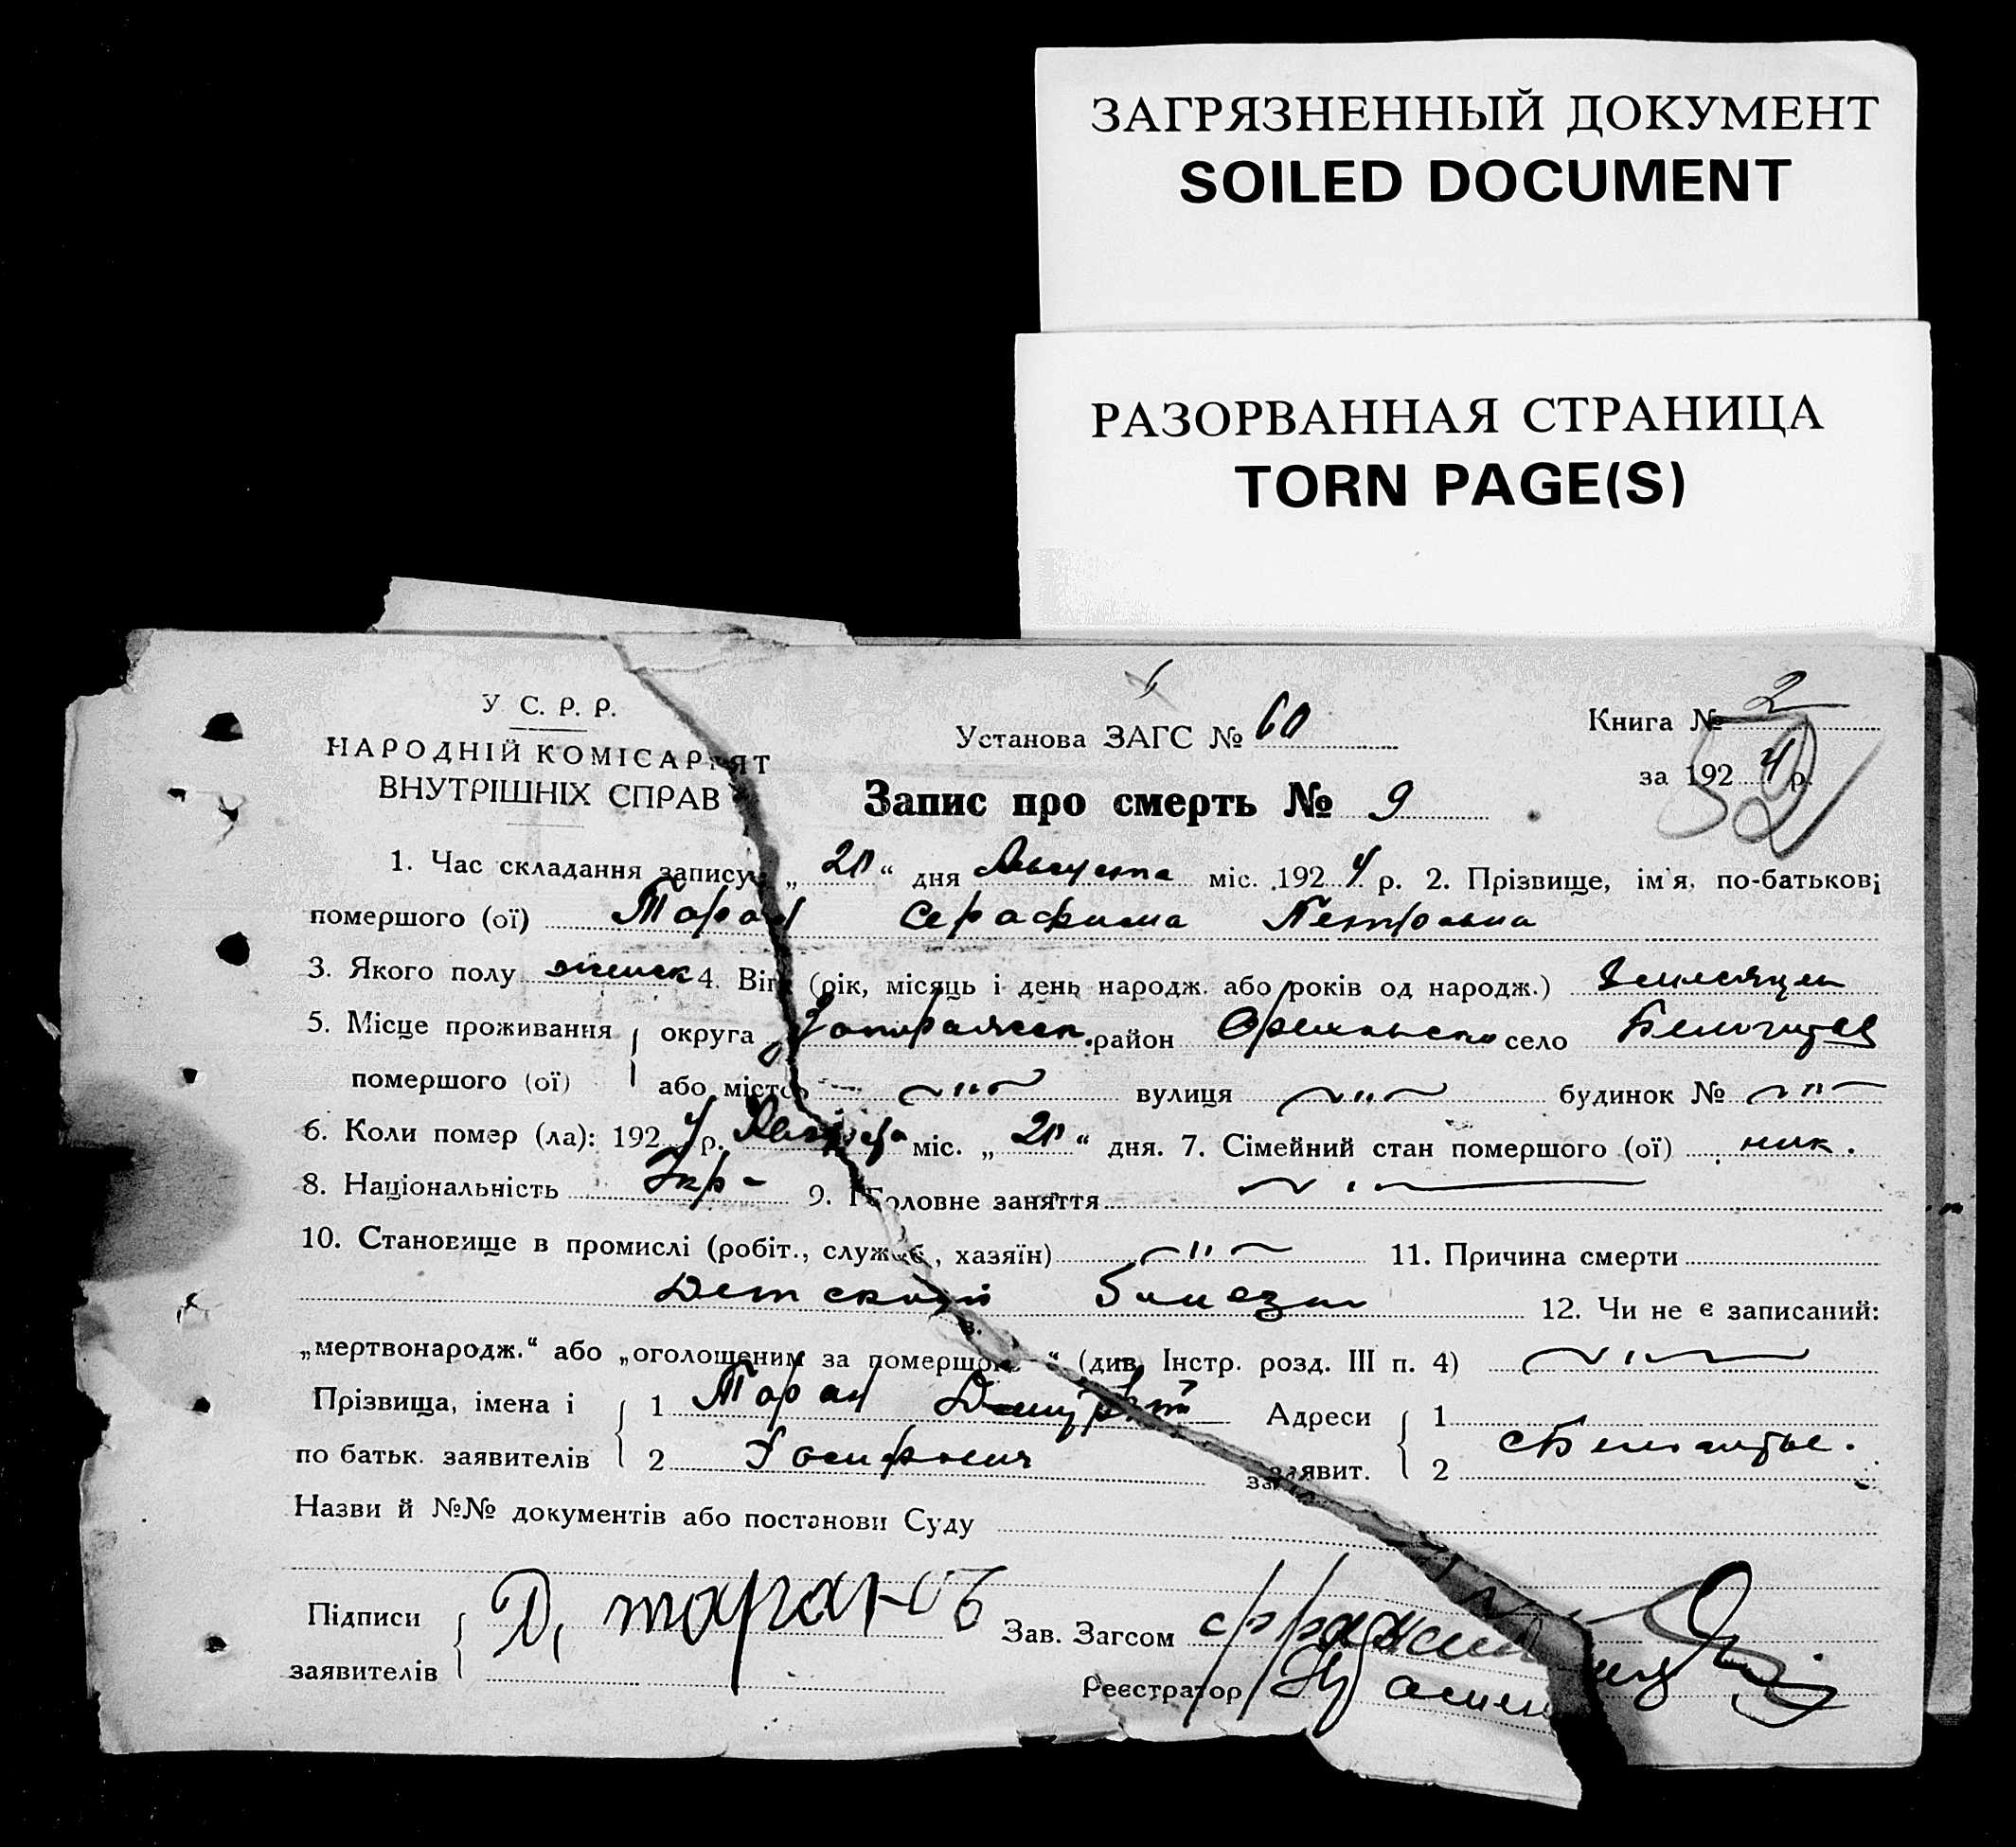 ЗАГРЯЗНЕННЫЙ ДОКУМЕНТ
SOILED DOCUMENT
РАЗОРВАННАЯ СТРАНИЦА
TORN PAGE(S)
У С. Р. Р.
НАРОДНІЙ КОМІСАРІЯТ
ВНУТРІШНІХ СПРАВ
Установа ЗАГС № 60
Книга № 2
за 1924 р.
52
Запис про смерть № 9
1. Час складання запису „20“ дня Августа міс. 1924 р. 2. Прізвище, ім'я, по-батькові
помершого (ої) Таран Серафима Петровна
3. Якого полу женск 4. Вік (рік, місяць і день народж. або років од народж.)
5. Місце проживання округа район село
помершого (ої) або місто вулиця будинок №
6. Коли помер (ла): 1924 р. Августа міс. „20“ дня. 7. Сімейний стан помершого (ої)
8. Національність Укр- 9. Головне заняття
10. Становище в промислі (робіт., служб., хазяїн) 11. Причина смерти
Детская 12. Чи не є записаний:
„мертвонародж.“ або „оголошеним за помершого“ (див. Інстр. розд. III п. 4)
Прізвища, імена і 1 Таран Адреси 1
по батьк. заявителів 2 заявит. 2
Назви й №№ документів або постанови Суду
Підписи Д. таранов Зав. Загсом
заявителів Реєстратор